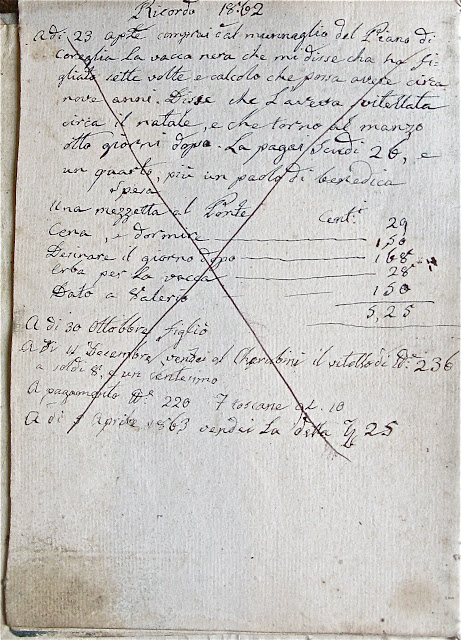 Ricordo 1862
A di 23 aprle comprai al munnaglio del Piano di
Coreglia La vacca nera che mi disse cha ha fi-
gliato sette volte e calcolo che possa avere circa
nove anni. Disse che L'aveva vitellata
circa il natale, e che torno al manzo
otto giorni dopo. La pagai Scudi 26, e
un quarto, più un paolo di benedica
Spesa
Una mezzetta al Ponte Cent.i 29
Cena, e dormire 1,50
Desinare il giorno dopo 168
Erba per La vacca 28
Dato a Valerio 150
5,25
A di 30 Ottobbre figliò
A di 4 Decembre vendei al Cherubini il vitello di 236
a soldi 8, e un centenno
A pagamento 220 Toscane al. 10
A di 5 Aprile 1863 vendei La detta 25